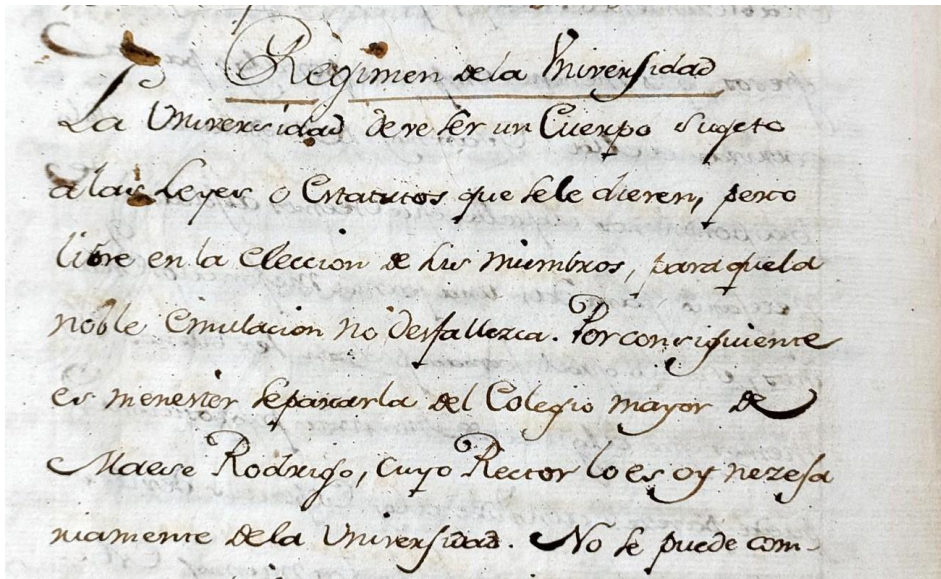 Regimen de la Universidad
La Universidad deve ser un Cuerpo sugeto
a las Leyes o Estatutos que se le dieren, pero
libre en la eleccion de sus miembros, para que la
noble emulacion no desfallezca. Por consiguiente
es menester separarla del Colegio mayor de
Maese Rodrigo, cuyo Rector lo es oy nezesa
riamente de la Universidad. No se puede com-